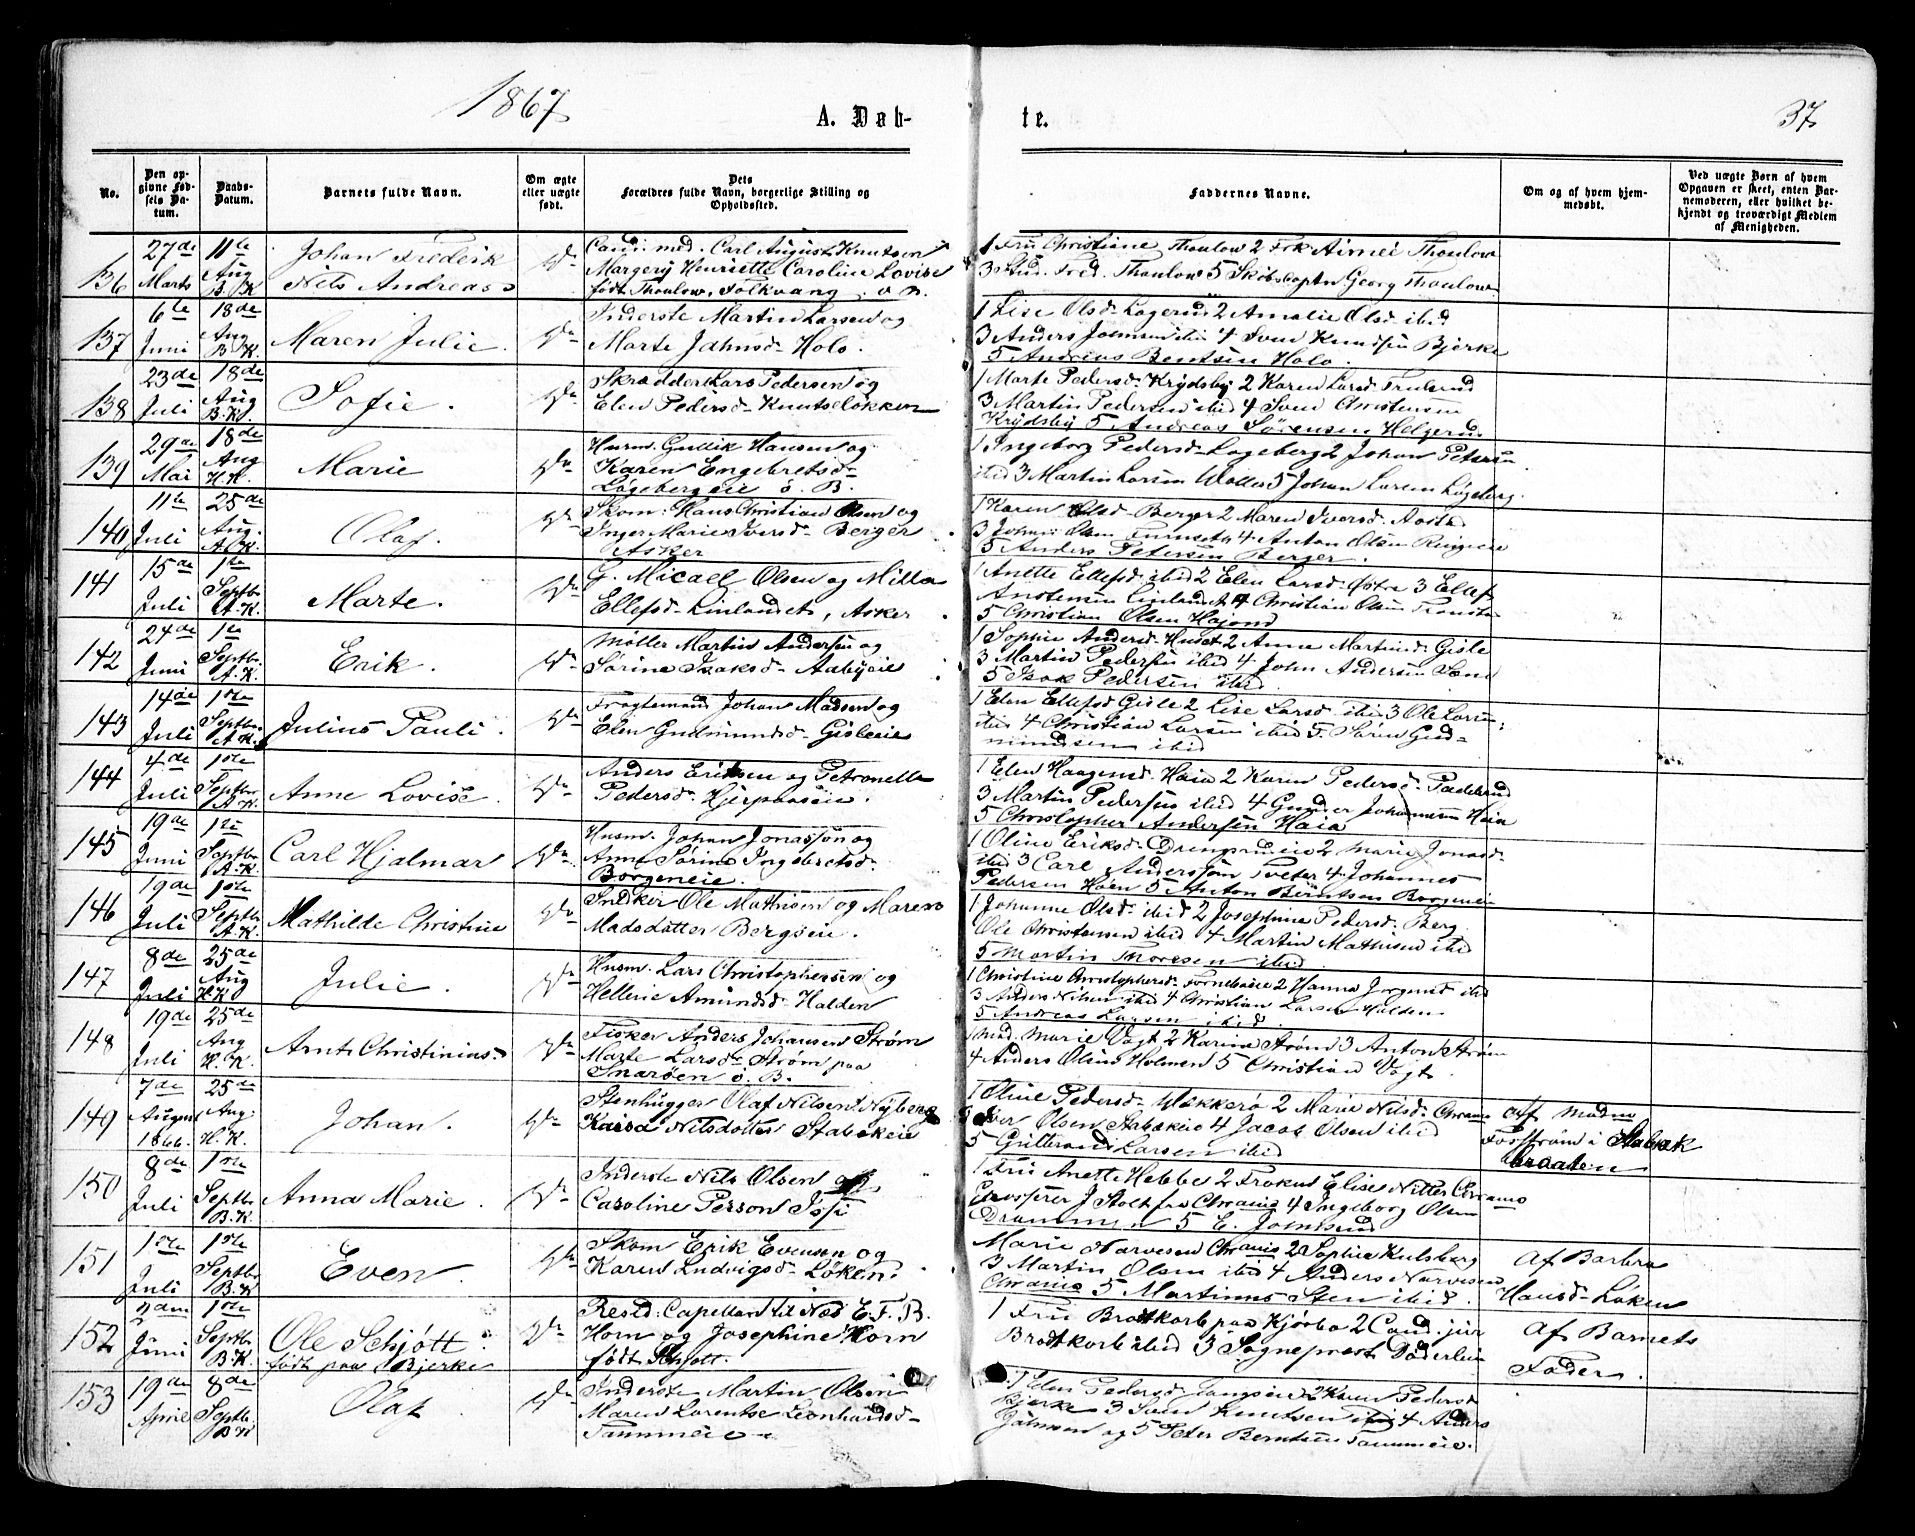 1867
A. Døb-
te.
37
No.
Den op-
givne Fød-
sels Da-
tum.
Daabs-
Datum.
Barnets fulde Navn.
Om ægte
eller uægte
født.
Dets
Forældres fulde Navn, borgerlige Stilling og
Opholdssted.
Faddernes Navne.
Om og af hvem hjem-
medøbt.
Ved uægte Børn af hvem
Opgaven er skeet, enten Bar-
nemoderen, eller hvilket be-
kjendt og troværdigt Medlem
af Menigheden.
136
27de
Marts
11te
Aug
B.K
Johan Frederik
Nils Andreas
Cand. med. Carl August Knutsen
Margery Henriette Caroline Lovise
født Thaulow, Folkvang
1 Fru Christiane Thaulow 2 Frk Aimeé Thaulow
3 Stud. Fred. Thaulow 5 Skibscaptn Georg Thaulow
137
6te
Juni
18de
Aug
B.K.
Maren Julie
Inderste Martin Larsen og
Marte Jahnsd. Holo.
1 Lise Olsd. Lagerud 2 Amalie Olsd ibid
3 Anders Johnsen ibid 4 Sven Knudsen Bjerke
5 Andreas Berntsen Holo.
138
23de
Juli
18de
Aug
B.K
Sofie.
Skrædder Lars Pedersen og
Elen Pedersd. Knutseløkken
1 Marte Pedersd. Krydsby 2 Karen Larsd
3 Martin Pedersen ibid 4 Sven Christensen
Krydsby 5 Andreas Sørensen Helgerud
139
29de
Mai
18de
Aug
H.K.
Marie
Husm. Gullik Hansen og
Karen Engebretsd.
Løgebergeie ø. B.
1 Ingeborg Pedersd. Lageberg 2 Johan Petersen
ibid 3 Martin Larsen 5 Johan Larsen Løgeberg.
140
11te
Juli
25de
Aug.
A.K.
Olaf.
Skom. Hans Christian Olsen og
Inger Marie Iversd. Berger
Asker
1 Karen Olsd. Berger 2 Maren Iversd.
3 Johan Olsen 4 Anton Olsen
5 Anders Petersen Berger.
141
15de
Juli
1ste
Septbr
A.K.
Marte.
G. Micael Olsen og Milla
Ellefsd. Linlandet, Asker
1 Anette Ellefsd ibid 2 Elen Larsd. Østre 3 Ellef
Anstensen Linlandet 4 Christian Olsen
5 Christian Olsen
142
24de
Juni
1ste
Septbr.
A.K.
Erik.
Møller Martin Andersen og
Sørine Isaksd. Aabyeie
1 Sophie Andersd. Huset 2 Anne Martinsd. Gisle
3 Martin Pedersen ibid 4 John Andersen
5 Isak Pedersen ibid
143
14de
Juli
1ste
Septbr
A.K.
Julius Pauli.
Fragtemand Johan Madsen og
Elen Gudmundsd. Gisleeie
1 Elen Ellefsd Gisle 2 Lise Larsd. ibid 3 Ole Larsen
ibid 4 Christian Larsen ibid 5. Søren Gud-
mundsen ibid
144
4de
Juli
1ste
Septbr
A.K.
Anne Lovise.
Anders Eriksen og Petronelle
Pedersd.
1 Elen Haagensd. Haia 2 Karen Pedersd.
3 Martin Pedersen ibid 4 Gunder Johannesen Haia
5 Christopher Andersen Haia
145
19de
Juni
1ste
Septbr
A.K.
Carl Hjalmar
Husm. Johan Jonassøn og
Anne Sørine Ingebretsd.
Borgeneie.
1 Oline Eriksd. 2 Marie Jonasd.
ibid 3 Carl Anderssøn Tveter 4 Johannes
Pedersen Høen 5 Anton Berntsen Borgeneie
146
19de
Juli
1ste
Septbr
A.K.
Mathilde Christine
Snedker Ole Mathisen og Maren
Madsdatter Bergseie.
1 Johanne Olsd. ibid 2 Josephine Pedersd. Berg
Ole Christensen ibid 4 Martin Mathisen ibid
5 Martin Thoresen ibid
147
8de
Juli
25de
Aug
H.K
Julie.
Husm. Lars Christophersen og
Hellene Amundsd. Halden
1 Christine Christophersd. Fornebueie 2 Hanna Jørgensd. ibid
3 Anders Nilsen ibid 4 Christian Larsen Halden
5 Andreas Larsen ibid.
148
19de
Juli
25de
Aug
H.K.
Arnt Christinius
Fisker Anders Johansen Strøm
Marte Larsd. Strøm paa
Snarøen ø. B.
1 Mad. Marie Vogt 2 Karine Strøm 3 Anton Strøm
4 Anders Olsen Holmen 5 Christian Vogt.
149
7de
August
1866.
25de
Aug.
H.K.
Johan.
Stenhugger Olaf Nilsen Nyberg
Kaisa Nilsdotter Stabækeie
1 Oline Pedersd. Wækkerø 2 Marie Nilsd. Chrania
3 Iver Olsen Stabækeie 4 Jacob Olsen ibid
5 Larsen ibid
Af Madm
Forstrøm i Stabæk
braaten
150
8de
Juli
1ste
Septbr
B.K.
Anna Marie.
Inderste Nils Olsen og
Caroline Person
1 Fru Anette Hebbe 2 Frøken Elise Nitter Chrania
Grosserer J Stolt fra Chrania 4 Ingeborg Olsen
Drammen 5 E. Johnsen
151
1ste
Juli
1ste
Septbr
B.K
Even.
Skom Erik Evensen og
Karen Ludvigsd. Løken.
Marie Narvesen Chrania 2 Sophie Kulsberg
3 Martin Olsen ibid 4 Anders Narvesen
Chrania 5 Martinus Sten ibid.
Af Barbra
Hansd. Løken
152
Juni
1ste
Septbr
B.K.
Ole Schjøtt
født paa Bjerke
Resid. Capellan til Næs E. F. B.
Horn og Josephine Horn
født Schjøtt.
1 Fru Brodtkorb paa Kjørbo 2 Cand. jur
Brodtkorb ibid 3 Sogneprest Døderlein
Af Barnets
Fader.
153
19de
April
8de
Septbr.
B.K
Olaf
Inderste Martin Olsen
Maren Lorentse Leonhardsd.
Tanumeie
1 Elen Pedersd. 2 Karen Pedersd
Bjerke 3 Sven Knutsen ibid 4 Anders
Johnsen og 5 Peter Berntsen Tanumeie.